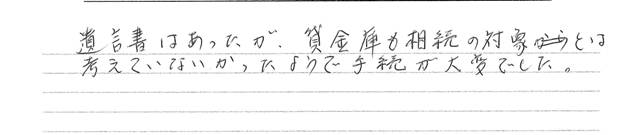 遺言書はあったが、貸金庫も相続の対象とは
考えていないかったようで手続が大変でした。